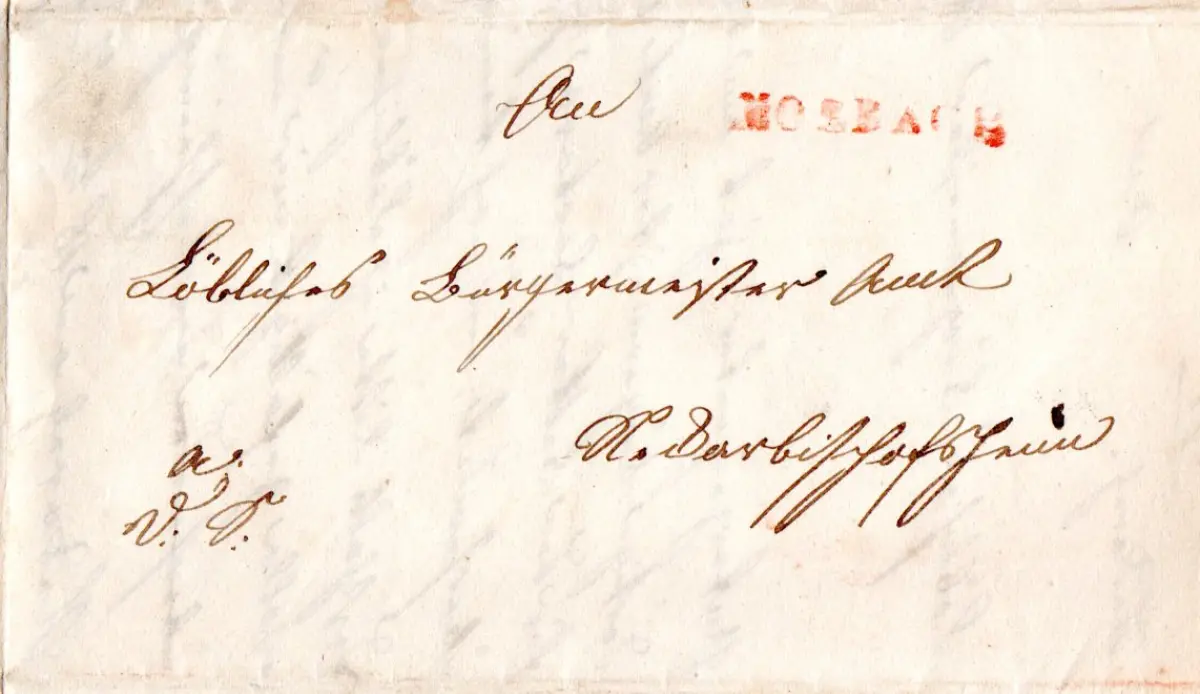 An MOSBACH
Löbliches Bürgermeister Amt
Neckarbischofsheim
a.
D. S.